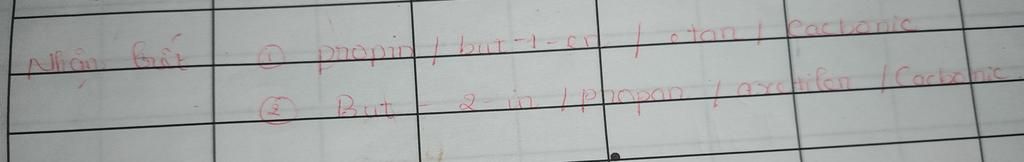 Nhận biết ① propin / but-1-en / etan / Cacbonic
② But - 2 - in / propan / axetilen / Cacbonic